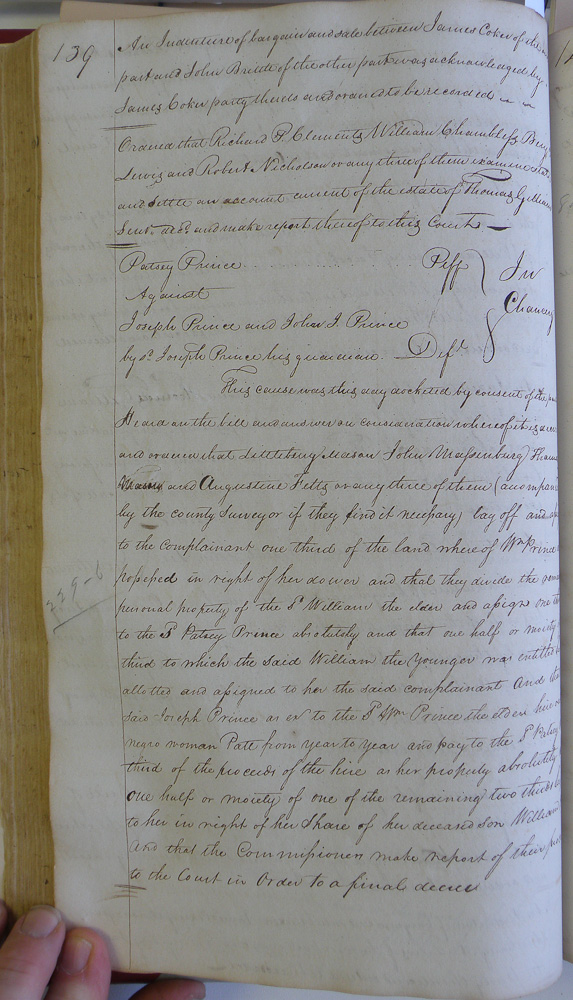 139
An Indenture of bargain and sale between James Coker of the
part and John Bride of the other part was acknowledged by
James Coker party thereto and ordered to be recorded
Ordered that Richard P. Clements William Chambless
Lewis and Robert Nicholson or any three of them examine state
and settle an account current of the estate of Thomas
Senr. decd. and make report thereof to this Court
Patsey Prince Plff
Against
In Chancery
Joseph Prince and John J. Prince
by sd. Joseph Prince his guardian. Deft
This cause was this day docketed by consent of the
Heard on the bill and answer on consideration whereof it is
and ordered that Littlebury Mason John Massenburg
and Augustine Felts or any three of them (accompan
by the county surveyor if they find it necessary) lay off and
to the complainant one third of the land whereof Wm Prince
possessed in right of her dower and that they divide the
personal property of the Sd. William the elder and assign one
to the Sd. Patsey Prince absolutely and that one half or moiety
third to which the said William the Younger was entitled
allotted and assigned to her the said complainant And
said Joseph Prince as exr to the Sd. Wm Prince the elder hire
negro woman Patt from year to year and pay to the Sd. Patsey
third of the proceeds of the hire as her property absolutely
one half or moiety of one of the remaining two thirds
to her in right of her share of her deceased son William
And that the Commissioners make report of their
to the Court in Order to a final decree
229-6